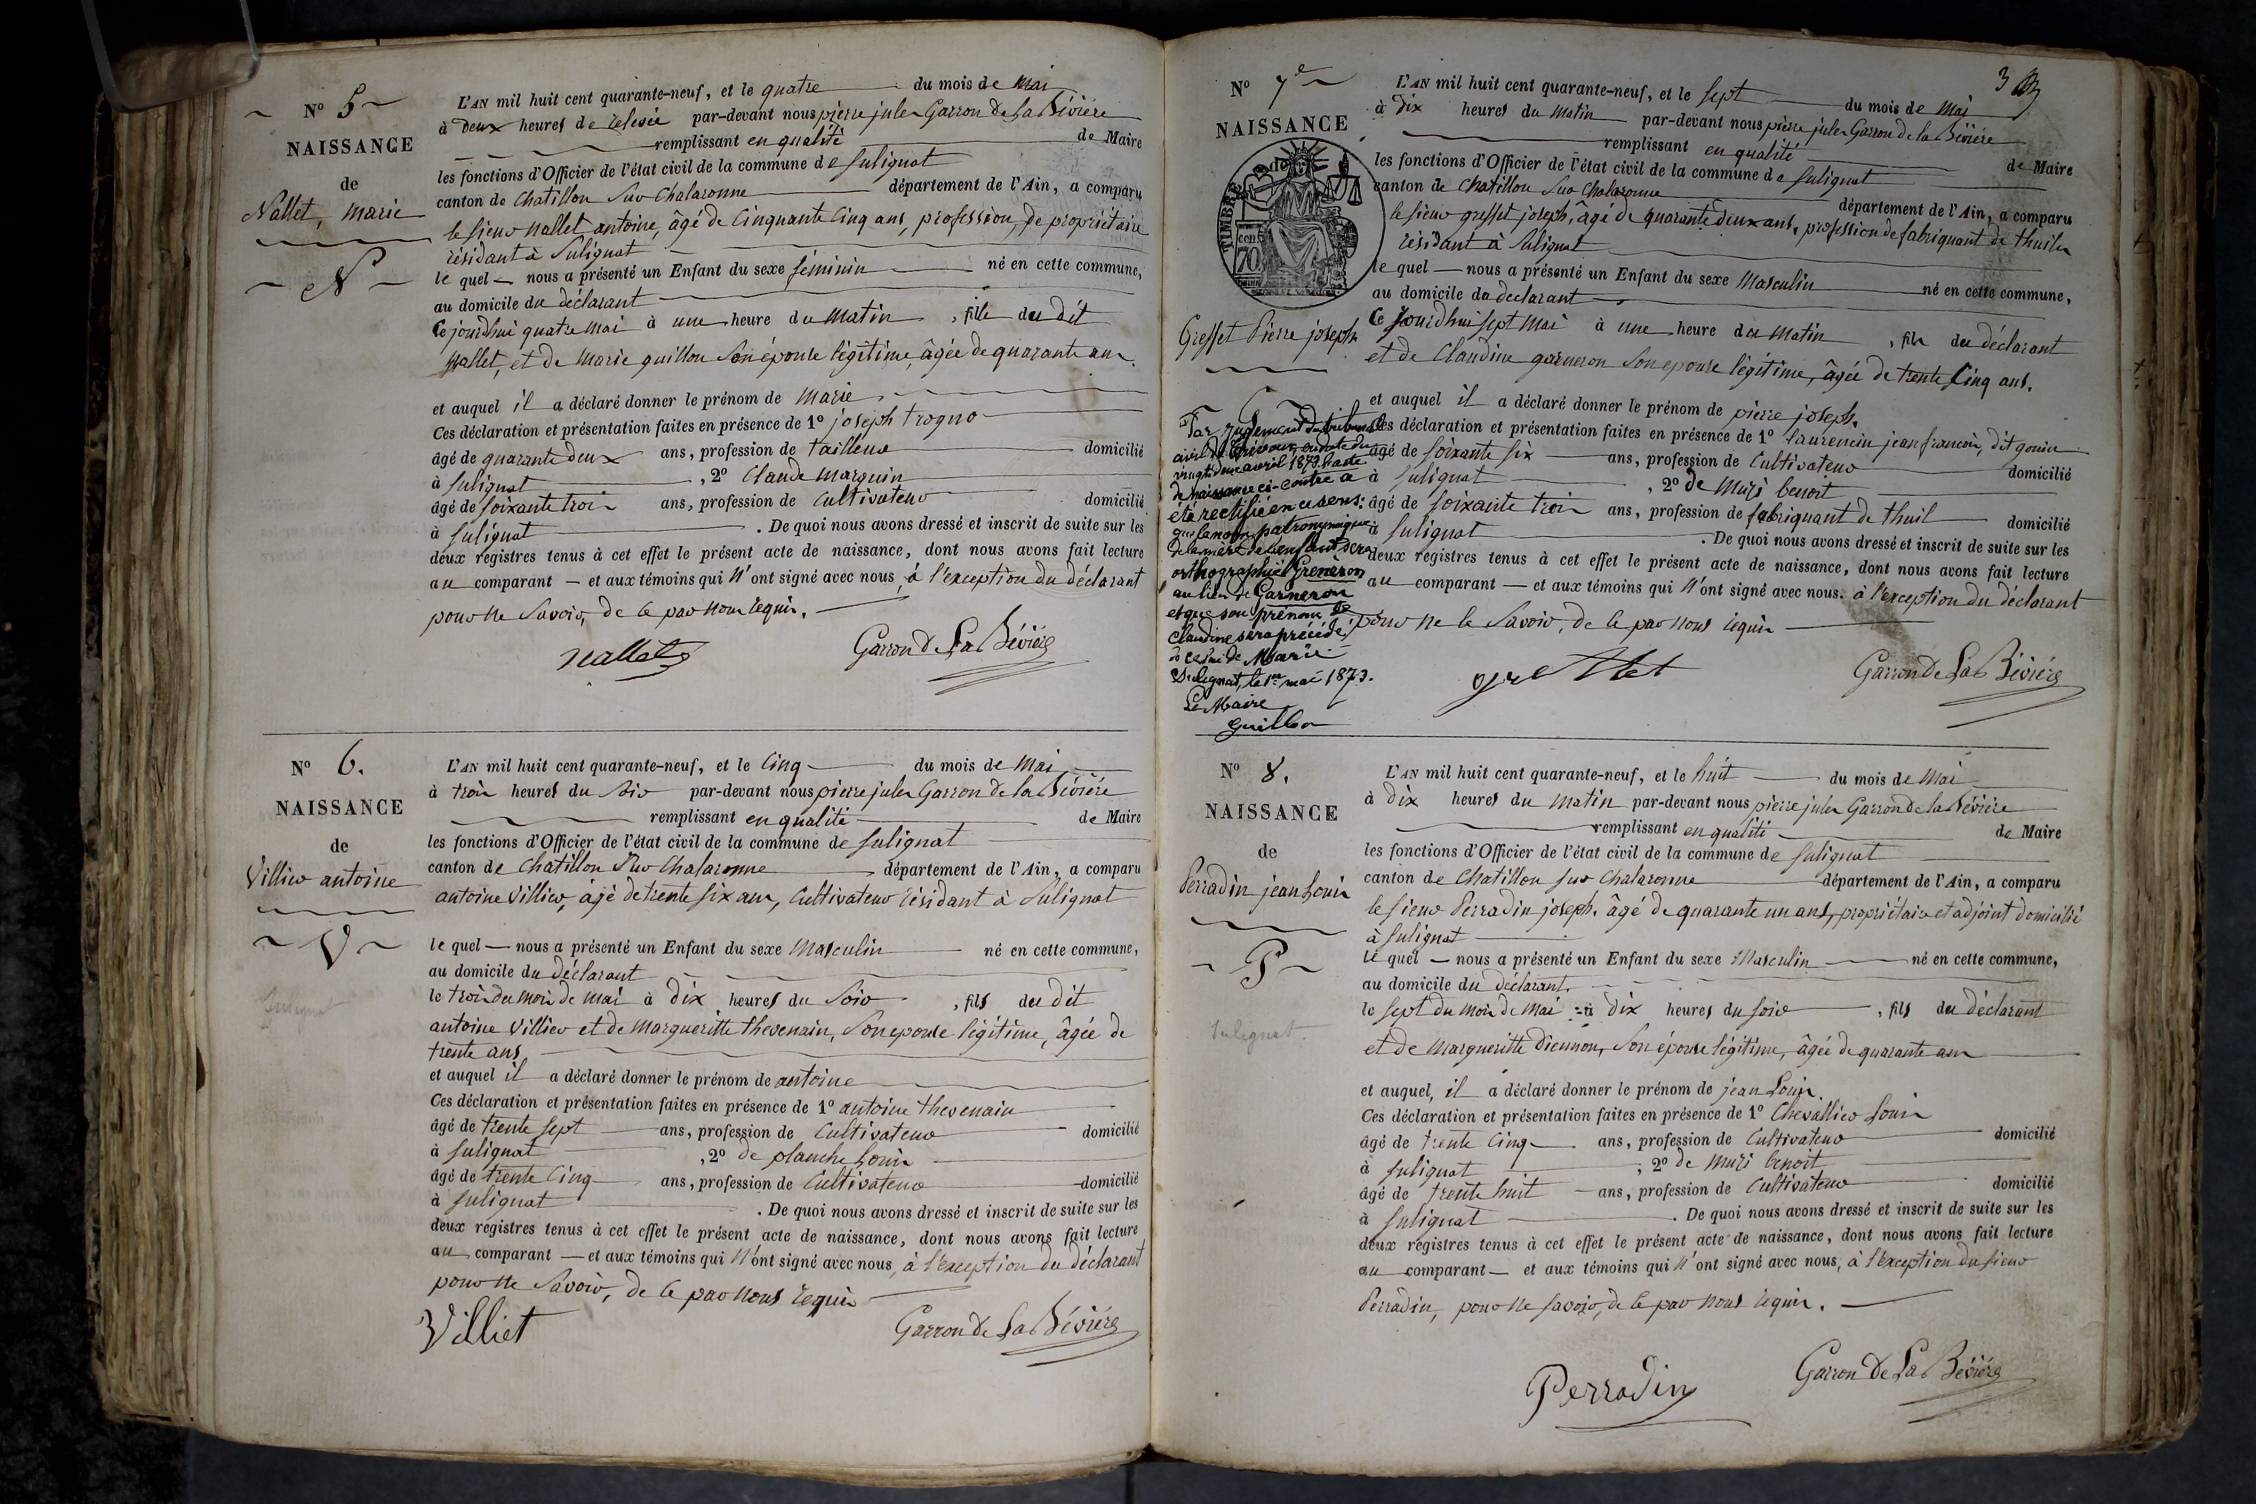 N° 5
NAISSANCE
de
Nallet, marie
N
L'AN mil huit cent quarante-neuf, et le quatre du mois de mai
à deux heures de relevée par-devant nous pierre jules Garron de la Bévière
remplissant en qualité de Maire
les fonctions d'Officier de l'état civil de la commune de Sulignat
canton de Chatillon Sur Chalaronne département de l'Ain, a comparu
le sieur nallet antoine, âgé de Cinquante Cinq ans, profession, de propriétaire
résidant à Sulignat
le quel — nous a présenté un Enfant du sexe féminin né en cette commune,
au domicile du déclarant
Ce jourdhui quatre mai à une heure du matin, fille du dit
Nallet, et de Marie guillon Son épouse légitime, âgée de quarante ans.
et auquel il a déclaré donner le prénom de Marie
Ces déclaration et présentation faites en présence de 1° joseph trogno
âgé de quarante deux ans, profession de tailleur domicilié
à Sulignat, 2° Claude marguin
âgé de soixante trois ans, profession de Cultivateur domicilié
à Sulignat. De quoi nous avons dressé et inscrit de suite sur les
deux registres tenus à cet effet le présent acte de naissance, dont nous avons fait lecture
au comparant — et aux témoins qui n'ont signé avec nous, à l'exception du déclarant
pour ne Savoir, de ce par nous requis.
nallet Garron De La Bévière
N° 6.
NAISSANCE
de
Villier antoine
V
L'AN mil huit cent quarante-neuf, et le Cinq du mois de Mai
à trois heures du Soir par-devant nous pierre jules Garron de la Bévière
remplissant en qualité de Maire
les fonctions d'Officier de l'état civil de la commune de Sulignat
canton de Chatillon Sur Chalaronne département de l'Ain, a comparu
antoine Villier, âgé de trente six ans, Cultivateur résidant à Sulignat
le quel — nous a présenté un Enfant du sexe Masculin né en cette commune,
au domicile du déclarant
le trois du mois de mai à dix heures du Soir, fils du dit
antoine Villier et de Margueritte thevenain, Son epouse légitime, âgée de
trente ans
et auquel il a déclaré donner le prénom de antoine
Ces déclaration et présentation faites en présence de 1° antoine thevenain
âgé de trente sept ans, profession de Cultivateur domicilié
à Sulignat, 2° de planche Louis
âgé de trente Cinq ans, profession de Cultivateur domicilié
à Sulignat. De quoi nous avons dressé et inscrit de suite sur les
deux registres tenus à cet effet le présent acte de naissance, dont nous avons fait lecture
au comparant — et aux témoins qui n'ont signé avec nous, à l'exception du déclarant
pour ne Savoir, de ce par nous requis
Villiet Garron De La Bévière
3
N° 7e
NAISSANCE
TIMBRE
cen.
70
Greffet Pierre joseph
G
Par jugement du tribunal
civil de Trévoux, en date du
vingt deux avril 1873, l'acte
de naissance ci-contre a
été rectifié en ce sens:
que le nom patronymique
de la mère de l'enfant sera
orthographié Greneron
au lieu de Garneron
et que son prénom de
Claudine sera précédé
de celui de Marie.
Sulignat, le 1er mai 1873.
Le Maire
Guillon
L'AN mil huit cent quarante-neuf, et le sept du mois de Mai
à dix heures du matin par-devant nous pierre jules Garron de la Bévière
remplissant en qualité de Maire
les fonctions d'Officier de l'état civil de la commune de Sulignat
canton de Chatillon Sur Chalaronne département de l'Ain, a comparu
le sieur greffet joseph, âgé de quarante deux ans, profession de fabriquant de thuiles
résidant à Sulignat
le quel — nous a présenté un Enfant du sexe Masculin né en cette commune,
au domicile du declarant
Ce jourdhui sept Mai à une heure du Matin, fils du déclarant
et de Claudine garneron Son epouse légitime, âgée de trente Cinq ans.
et auquel il a déclaré donner le prénom de pierre joseph.
Ces déclaration et présentation faites en présence de 1° Laurencin jean françois, dit
âgé de soixante six ans, profession de Cultivateur domicilié
à Sulignat, 2° de Muri benoit
âgé de soixante trois ans, profession de fabriquant de thuil domicilié
à Sulignat. De quoi nous avons dressé et inscrit de suite sur les
deux registres tenus à cet effet le présent acte de naissance, dont nous avons fait lecture
au comparant — et aux témoins qui n'ont signé avec nous. à l'exception du déclarant
pour ne le Savoir, de ce par nous requis
Garron De La Bévière
N° 8.
NAISSANCE
de
Perradin jean Louis
P
Sulignat
L'AN mil huit cent quarante-neuf, et le huit du mois de Mai
à dix heures du Matin par-devant nous pierre jules Garron de la Bévière
remplissant en qualité de Maire
les fonctions d'Officier de l'état civil de la commune de Sulignat
canton de Chatillon sur Chalaronne département de l'Ain, a comparu
le sieur Perradin joseph, âgé de quarante un ans, propriétaire et adjoint domicilié
à Sulignat
le quel — nous a présenté un Enfant du sexe Masculin né en cette commune,
au domicile du déclarant.
le sept du mois de Mai à dix heures du soir, fils du déclarant
et de Margueritte Diennon, Son épouse légitime, âgée de quarante ans
et auquel, il a déclaré donner le prénom de jean Louis
Ces déclaration et présentation faites en présence de 1° Chevallier Louis
âgé de trente Cinq ans, profession de Cultivateur domicilié
à Sulignat, 2° de Muri benoit
âgé de trente huit ans, profession de Cultivateur domicilié
à Sulignat. De quoi nous avons dressé et inscrit de suite sur les
deux registres tenus à cet effet le présent acte de naissance, dont nous avons fait lecture
au comparant — et aux témoins qui n'ont signé avec nous, à l'exception du sieur
Perradin, pour ne savoir, de ce par nous requis.
Perradin Garron De La Bévière